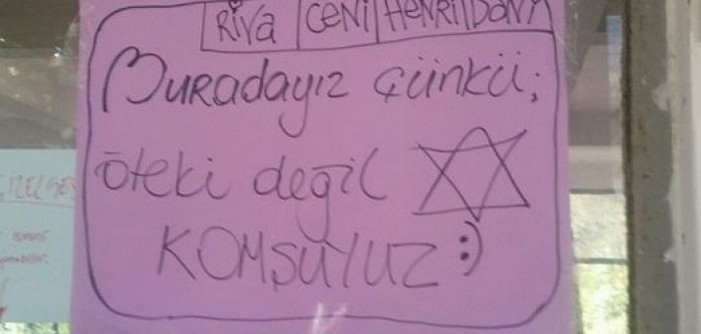 RİVa CENİ HENRİ DaNİ
Buradayız çünkü;
öteki değil
KOMŞUYUZ :)